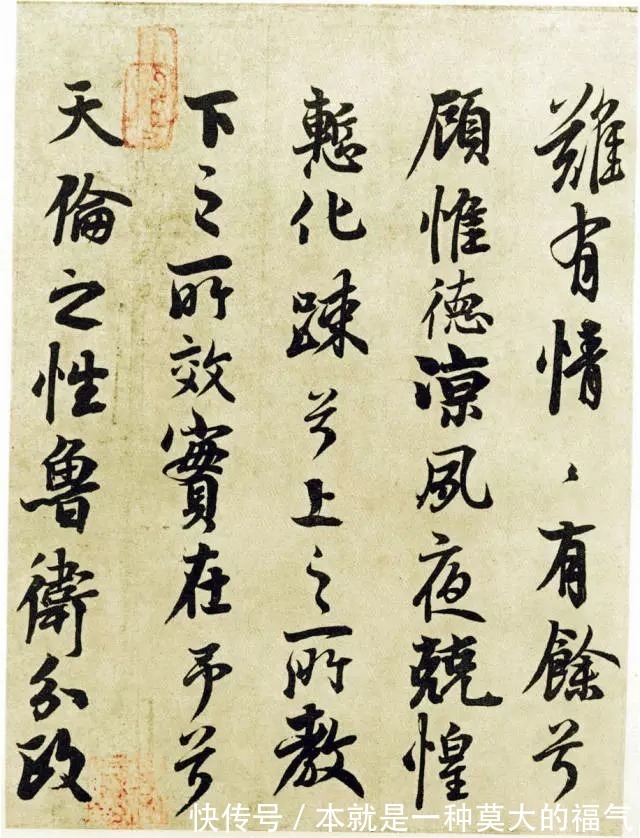 難有情〻有餘兮
顧惟德涼夙夜兢惶
慙化踈兮上之所教
下之所效實在予兮
天倫之性魯衛分政
快传号 / 本就是一种莫大的福气